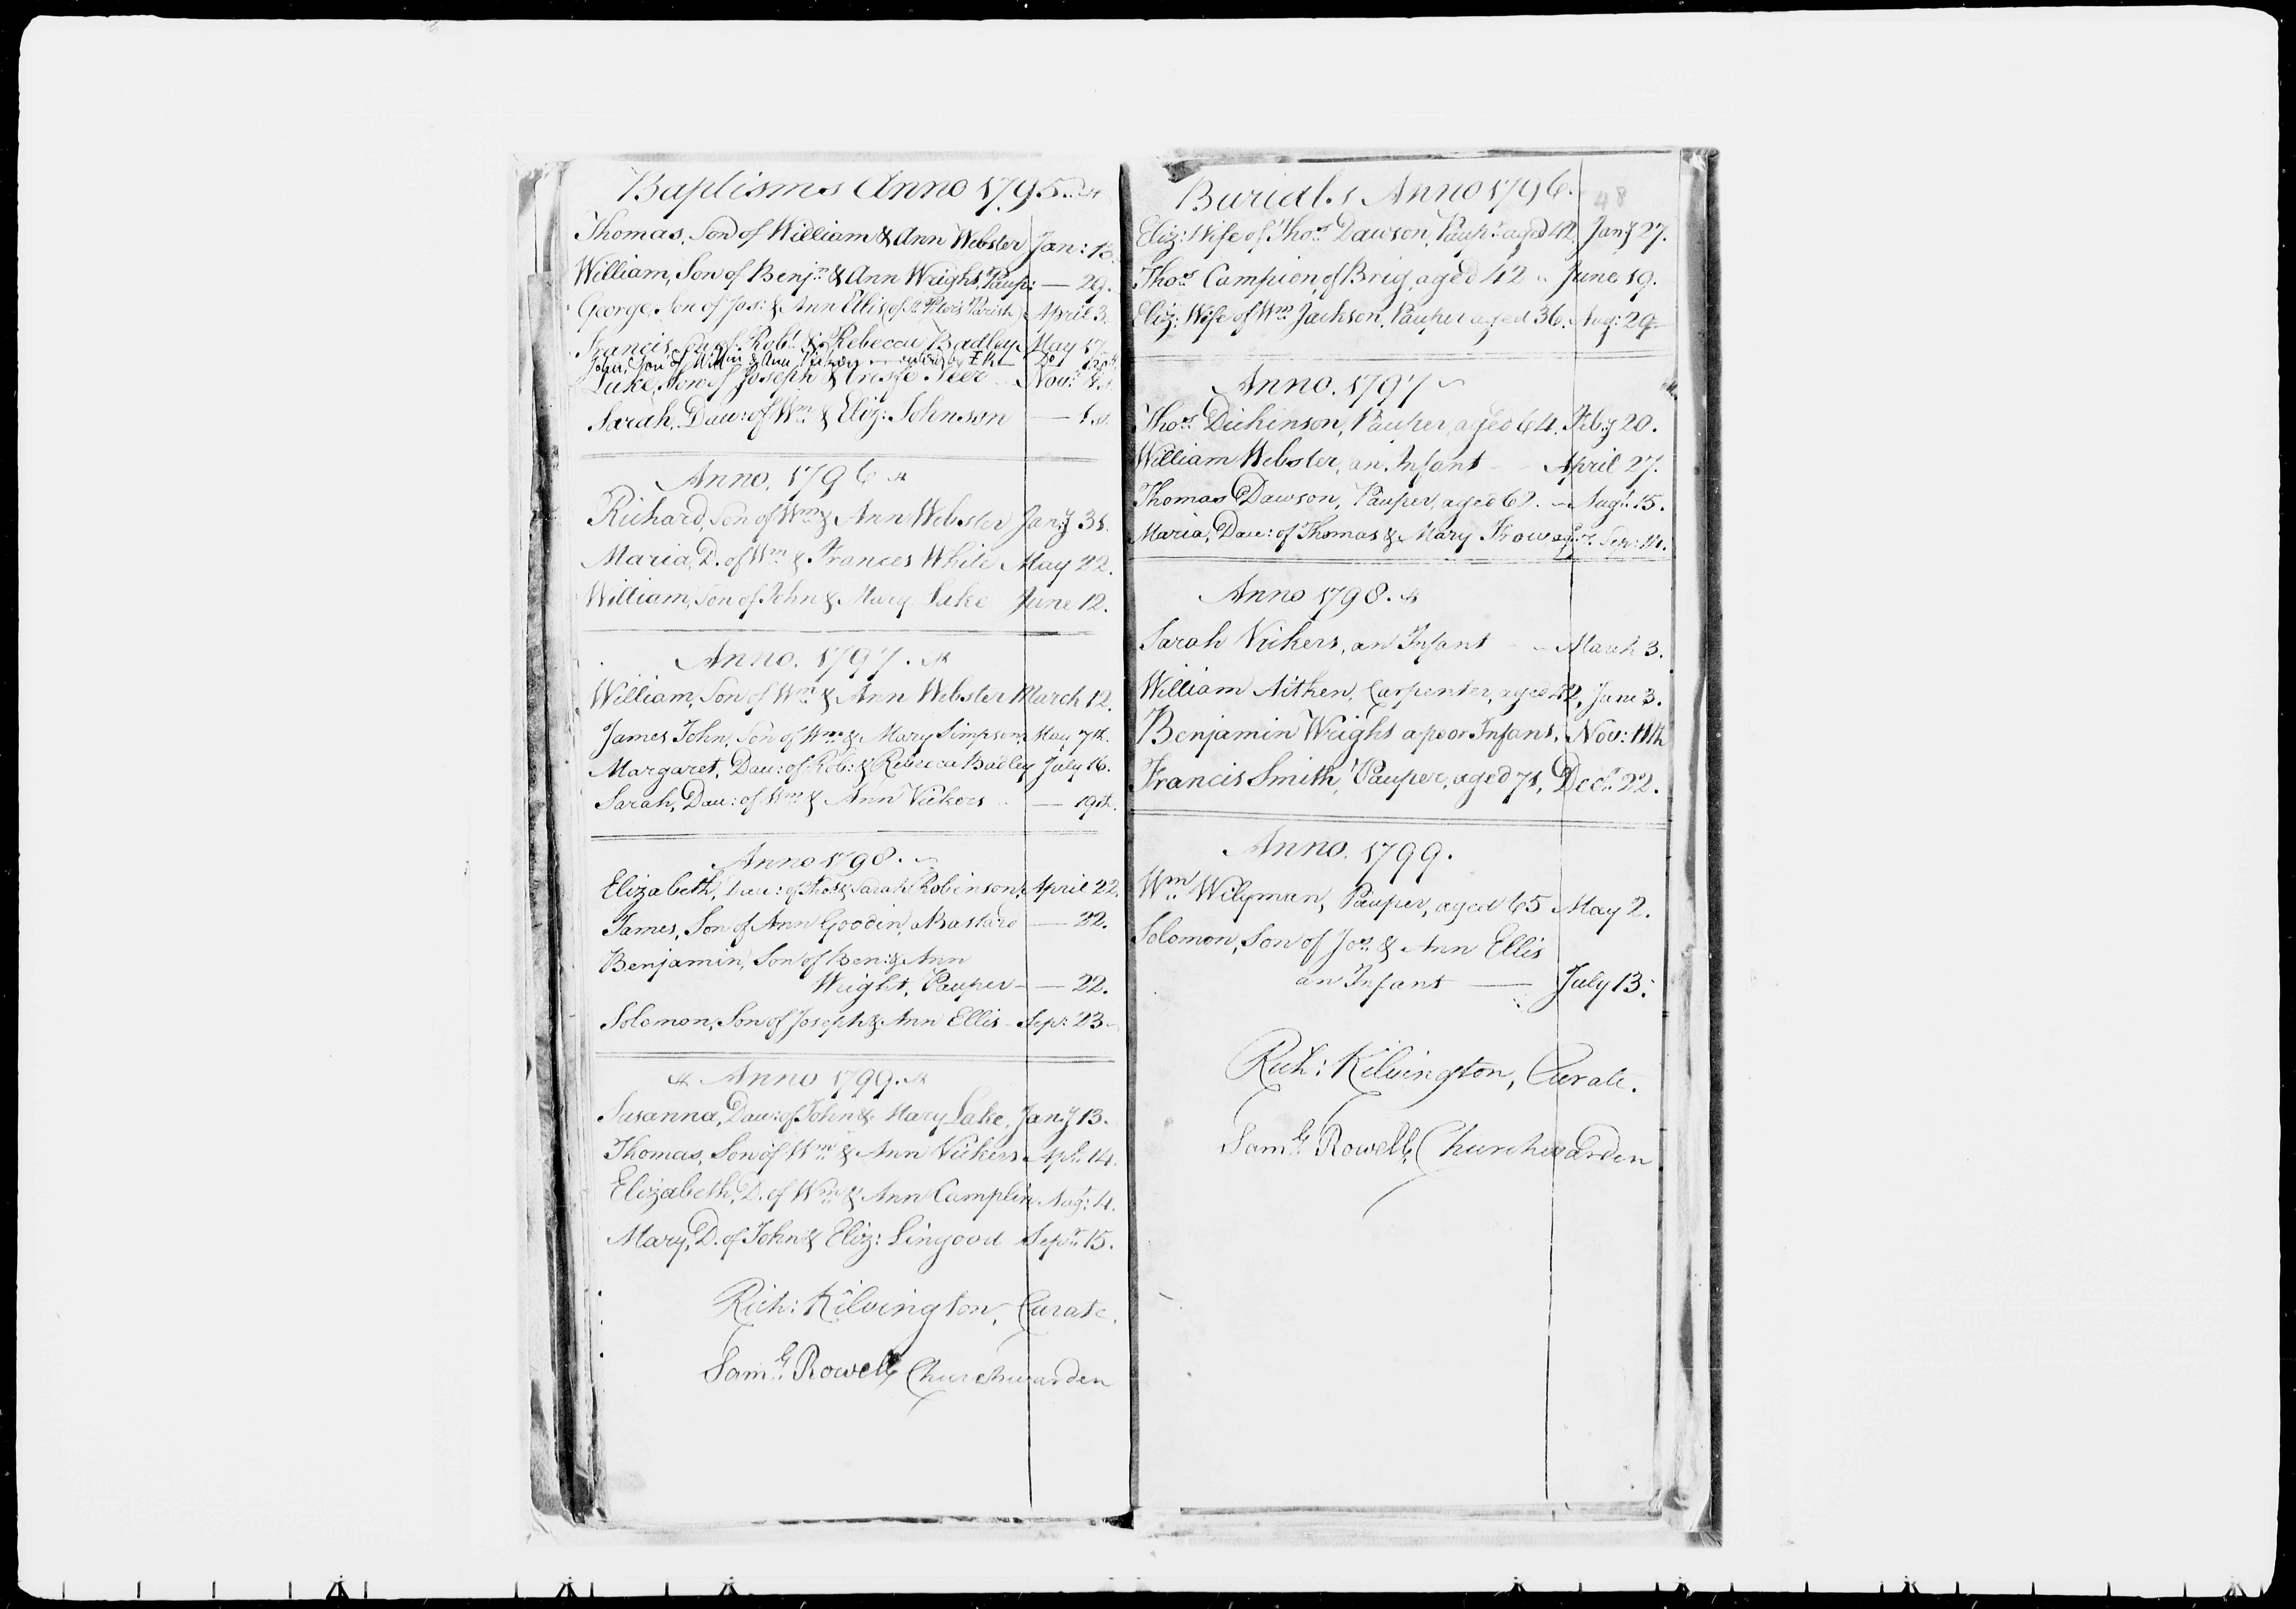 Baptisms Anno 1795.
Thomas, Son of William & Ann Webster Jan: 13.
William, Son of Benjn & Ann Wright, Paup: — 29.
George, Son of Jos: & Ann Ellis (of St Peter's Parish) April 3.
Francis, Son of Robt & Rebecca Badley May 17
John, Son of Willm & Ann entered by Do
Luke, Son of Joseph & Neer Novr 1st
Sarah, Dau: of Wm & Eliz: Johnson — 1st.
Anno. 1796
Richard, Son of Wm & Ann Webster Jany 31.
Maria, D. of Wm & Frances White May 22.
William, Son of John & Mary Lake June 12.
Anno. 1797.
William, Son of Wm & Ann Webster March 12.
James John, Son of Wm & Mary Simpson, May 7th.
Margaret, Dau: of Rob: & Rebecca Badley July 16.
Sarah, Dau: of Wm & Ann Vickers — 19th.
Anno 1798.
Elizabeth, Dau: of Thos & Sarah Robinson, April 22.
James, Son of Ann Goodin, a Bastard — 22.
Benjamin, Son of Ben: & Ann
Wright, Pauper — 22.
Solomon, Son of Joseph & Ann Ellis Sepr 23
Anno 1799.
Susanna, Dau: of John & Mary Lake, Jany 13.
Thomas, Son of Wm & Ann Vickers Apl. 14.
Elizabeth, D. of Wm & Ann Camplin Augt. 4.
Mary, D. of John & Eliz: Lingood Sepr. 15.
Rich: Kilvington, Curate.
Saml Rowell, Churchwarden
Burials Anno 1796.
48
Eliz: Wife of Thos Dawson, Paupr aged 42, Jany 27.
Thos Campion, of Brig, aged 42 June 19.
Eliz: Wife of Wm Jackson, Pauper aged 36. Aug: 29
Anno. 1797
Thos Dickinson, Pauper, aged 64. Feby 20.
William Webster, an Infant April 27.
Thomas Dawson, Pauper, aged 62. Augt. 15.
Maria, Dau: of Thomas & Mary Sepr 14.
Anno 1798.
Sarah Vickers, an Infant March 3.
William Aitken, Carpenter, aged 42, June 3.
Benjamin Wright a poor Infant, Nov: 11th
Francis Smith, Pauper, aged 71, Decr. 22.
Anno. 1799.
Wm Wilyman, Pauper, aged 65 May 2.
Solomon, Son of Jos & Ann Ellis
an Infant — July 13.
Rich: Kilvington, Curate.
Saml Rowell, Churchwarden